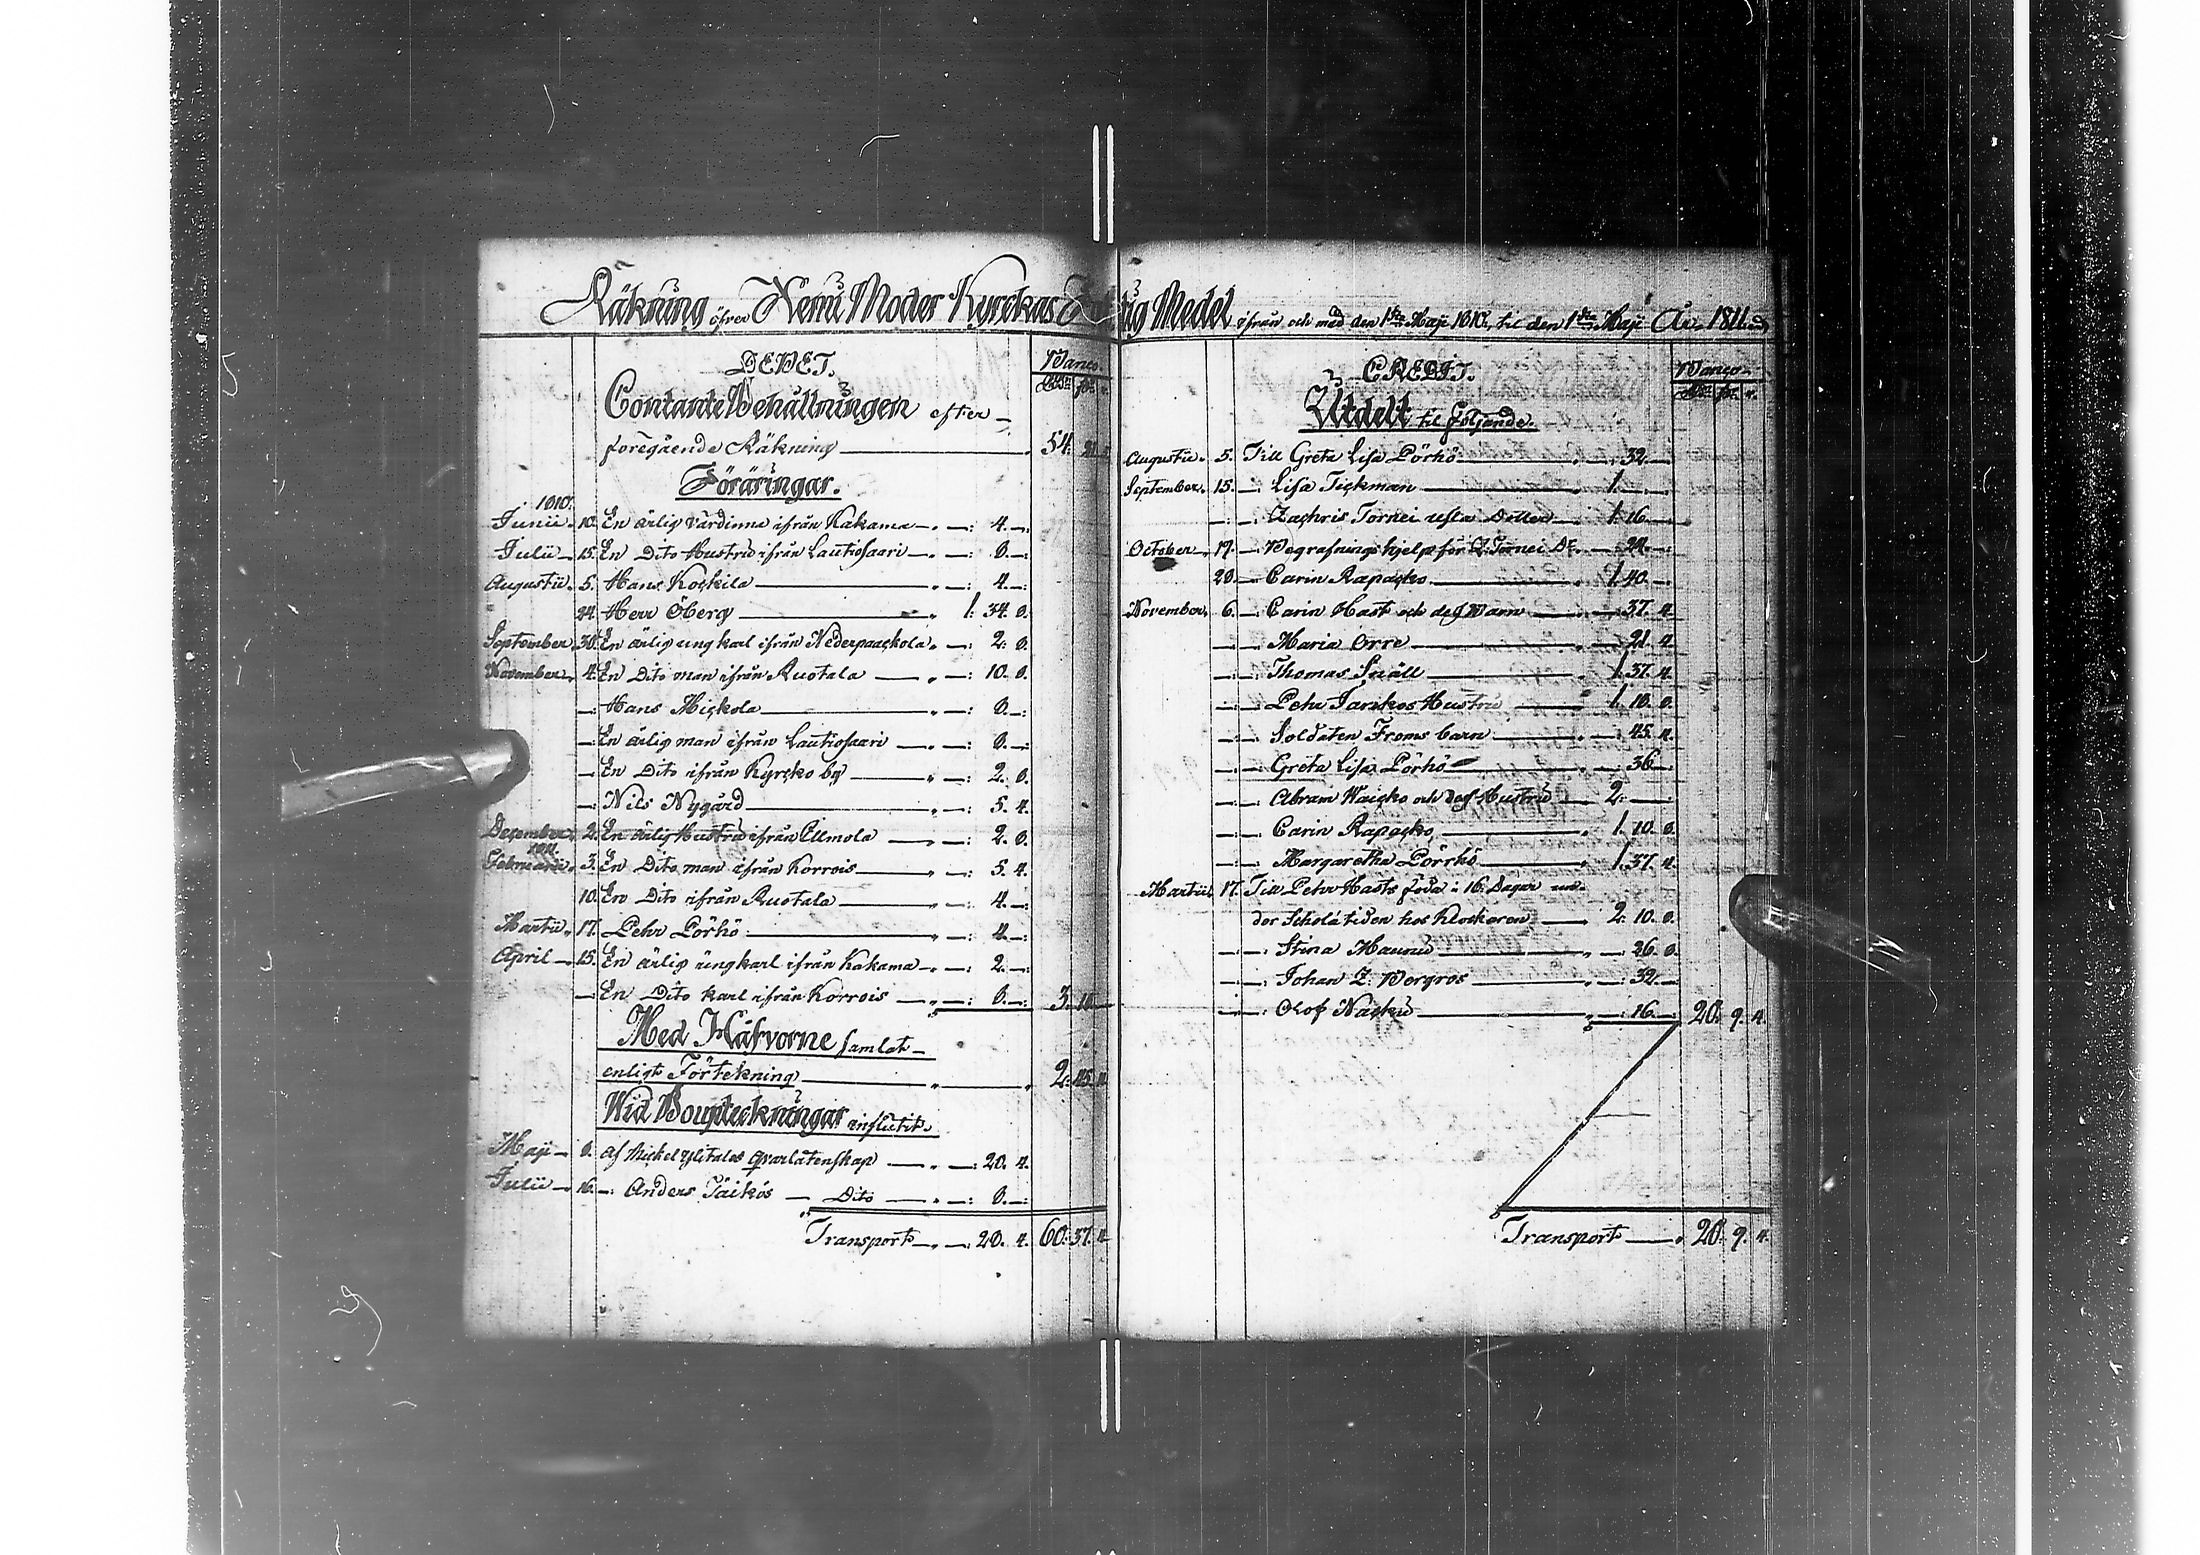 Räkning öfver Kemi Moder Kyrckas Fattig Medel ifrån och med den 1sta Maji 1810, til den 1sta Maji År 1811.
DEBET. Banco
Contante Behållningen efter
föregående Räkning 54.
Föräringar.
1810.
Junii 10. En ärlig värdinna ifrån Kakama 4.
Julii 15. En Dito Hustru ifrån Lautiosaari 8.
Augustii 5. Hans Koçkila 4.
24. Herr Öberg 1. 34. 8.
September 30. En ärlig ung karl ifrån Nederpaackola 2. 8.
November 4. En Dito man ifrån Ruotala 10. 8.
Hans Miçkola 8.
En ärlig man ifrån Lautiosaari 8.
En Dito ifrån Kyrcko by 2. 8.
Nils Nygård 5. 4.
December 2. En ärlig Hustru ifrån Ellmola 2. 8.
1811.
Februarii 3. En Dito man ifrån Korrois 5. 4.
10. En Dito ifrån Ruotala 4.
Martii 17. Pehr Pörhö 4.
April 15. En ärlig ung karl ifrån Kakama 2.
En Dito karl ifrån Korrois 8. 3. 18
Med Håfvorne samlat
enligt Förtekning 2. 45.
Wid Bouptekningar influtit.
Maji 8. Af Mickel Ylitalos qvarlåtenskap 20. 4.
Julii 16. Anders Taikos Dito 8.
Transport 28. 4. 60. 37. 4
CREDIT. Banco
Utdelt til följande.
Augustii 5. Till Greta Lisa Pörhö 32.
September 15. Lisa Tiçkman 1.
Zachris Tornei usla Dotter 1. 16.
October 17. Begrafnings hjelp för Z. Tornei Dr. 24.
28. Carin Rapaçko 1. 40.
November 6. Carin Hast och deß Barn 37. 4.
Maria Orre 21. 4.
Thomas Snäll 1. 37. 4.
Pehr Jarckos Hustru 1. 10. 8.
Soldaten Froms barn 45. 4.
Greta Lisa Pörhö 36.
Abram Waiçko och deß Hustru 2.
Carin Rapaçko 1. 10. 8.
Margaretha Pörrhö 1. 37. 4.
Martii 17. Till Pehr Hasts föda i 16. Dagar un-
der Scholå tiden hos Klockaren 2. 10. 8.
Stina Maunu 26. 8.
Johan Z. Bergros 32.
Olof Naçku 16. 20. 9. 4.
Transport 20. 9. 4.